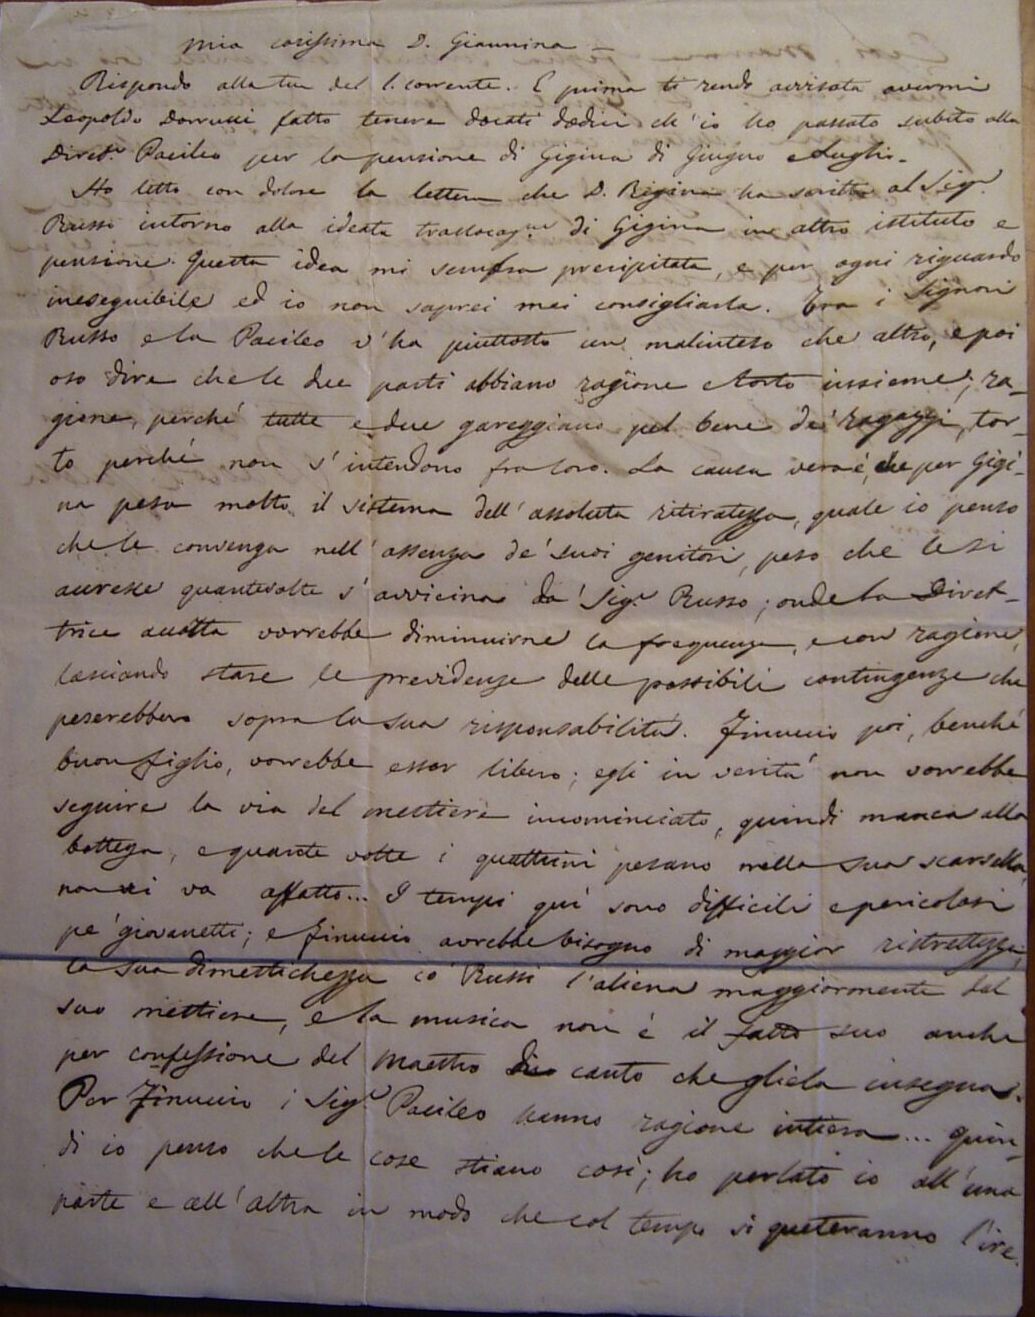 Mia carissima D. Giannina –
Rispondo alla tua del l. corrente. E prima ti rendo avvisata avermi
Leopoldo Dorrucci fatto tenere docati dodici ch'io ho passato subito alla
Diret.e Pacileo per la pensione di Gigina di Giugno e Luglio.
Ho letto con dolore la lettera che D. Regina ha scritto al Sig.r
Russo intorno alla ideata traslocaz.ne di Gigina in altro istituto e
pensione. Questa idea mi sembra precipitata, e per ogni riguardo
ineseguibile ed io non saprei mai consigliarla. Tra i Signori
Russo e la Pacileo v'ha piuttosto un malinteso che altro, e poi
oso dire che le due parti abbiano ragione e torto insieme; ra-
gione, perché tutte e due gareggiano pel bene de' ragazzi, tor-
to perché non s'intendono fra loro. La causa vera è, che per Gigi-
na pesa molto il sistema dell'assoluta ritiratezza, quale io penso
che le convenga nell'assenza de' suoi genitori, peso che le si
accresce quantevolte s'avvicina da' Sig.i Russo; onde la Diret-
trice accotta vorrebbe diminuirne la frequenza, e con ragione,
lasciando stare le previdenze delle possibili contingenze che
peserebbero sopra la sua risponsabilità. Finuccio poi, benché
buon figlio, vorrebbe esser libero; egli in verità non vorrebbe
seguire la via del mestiere incominciato, quindi manca alla
bottega, e quante volte i quattrini pesano nella sua scarsella,
non vi va affatto... I tempi qui sono difficili e pericolosi
pe' giovanetti; e Finuccio avrebbe bisogno di maggior ristrettezza;
la sua dimestichezza co' Russi l'aliena maggiormente dal
suo mestiere, e la musica non è il fatto suo anche
per confessione del Maestro di canto che gliela insegna.
Per Finuccio i Sig.i Pacileo hanno ragione intiera... Quin-
di io penso che le cose stiano così; ho parlato io all'una
parte e all'altra in modo che col tempo si queteranno l'ire.